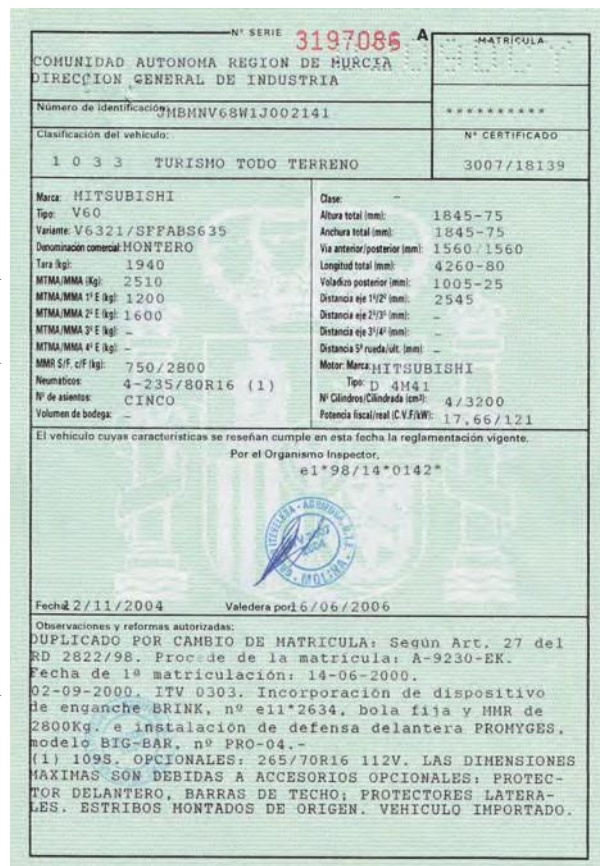 Nº SERIE 3197086 A
MATRICULA
COMUNIDAD AUTONOMA REGION DE MURCIA
DIRECCION GENERAL DE INDUSTRIA
Número de identificación JMBMNV68W1J002141
**********
Clasificación del vehículo:
Nº CERTIFICADO
1 0 3 3 TURISMO TODO TERRENO
3007/18139
Marca: MITSUBISHI
Tipo: V60
Variante: V6321/SFFABS635
Denominación comercial: MONTERO
Tara (kg): 1940
MTMA/MMA (Kg): 2510
MTMA/MMA 1º E (kg): 1200
MTMA/MMA 2º E (kg): 1600
MTMA/MMA 3º E (kg): –
MTMA/MMA 4º E (kg): –
MMR S/F, c/F (kg): 750/2800
Neumáticos: 4-235/80R16 (1)
Nº de asientos: CINCO
Volumen de bodega: –
Clase: –
Altura total (mm): 1845-75
Anchura total (mm): 1845-75
Vía anterior/posterior (mm): 1560/1560
Longitud total (mm): 4260-80
Voladizo posterior (mm): 1005-25
Distancia eje 1º/2º (mm): 2545
Distancia eje 2º/3º (mm): –
Distancia eje 3º/4º (mm): –
Distancia 5ª rueda/últ. (mm): –
Motor: Marca: MITSUBISHI
Tipo: D 4M41
Nº Cilindros/Cilindrada (cm³): 4/3200
Potencia fiscal/real (C.V.F/kW): 17,66/121
El vehículo cuyas características se reseñan cumple en esta fecha la reglamentación vigente.
Por el Organismo Inspector,
e1*98/14*0142*
MOLINA
Fecha 12/11/2004 Valedera por 16/06/2006
Observaciones y reformas autorizadas:
DUPLICADO POR CAMBIO DE MATRICULA: Según Art. 27 del
RD 2822/98. Procede de la matrícula: A-9230-EK.
Fecha de 1ª matriculación: 14-06-2000.
02-09-2000. ITV 0303. Incorporación de dispositivo
de enganche BRINK, nº e11*2634, bola fija y MMR de
2800Kg. e instalación de defensa delantera PROMYGES,
modelo BIG-BAR, nº PRO-04.-
(1) 109S. OPCIONALES: 265/70R16 112V. LAS DIMENSIONES
MAXIMAS SON DEBIDAS A ACCESORIOS OPCIONALES: PROTEC-
TOR DELANTERO, BARRAS DE TECHO; PROTECTORES LATERA-
LES. ESTRIBOS MONTADOS DE ORIGEN. VEHICULO IMPORTADO.